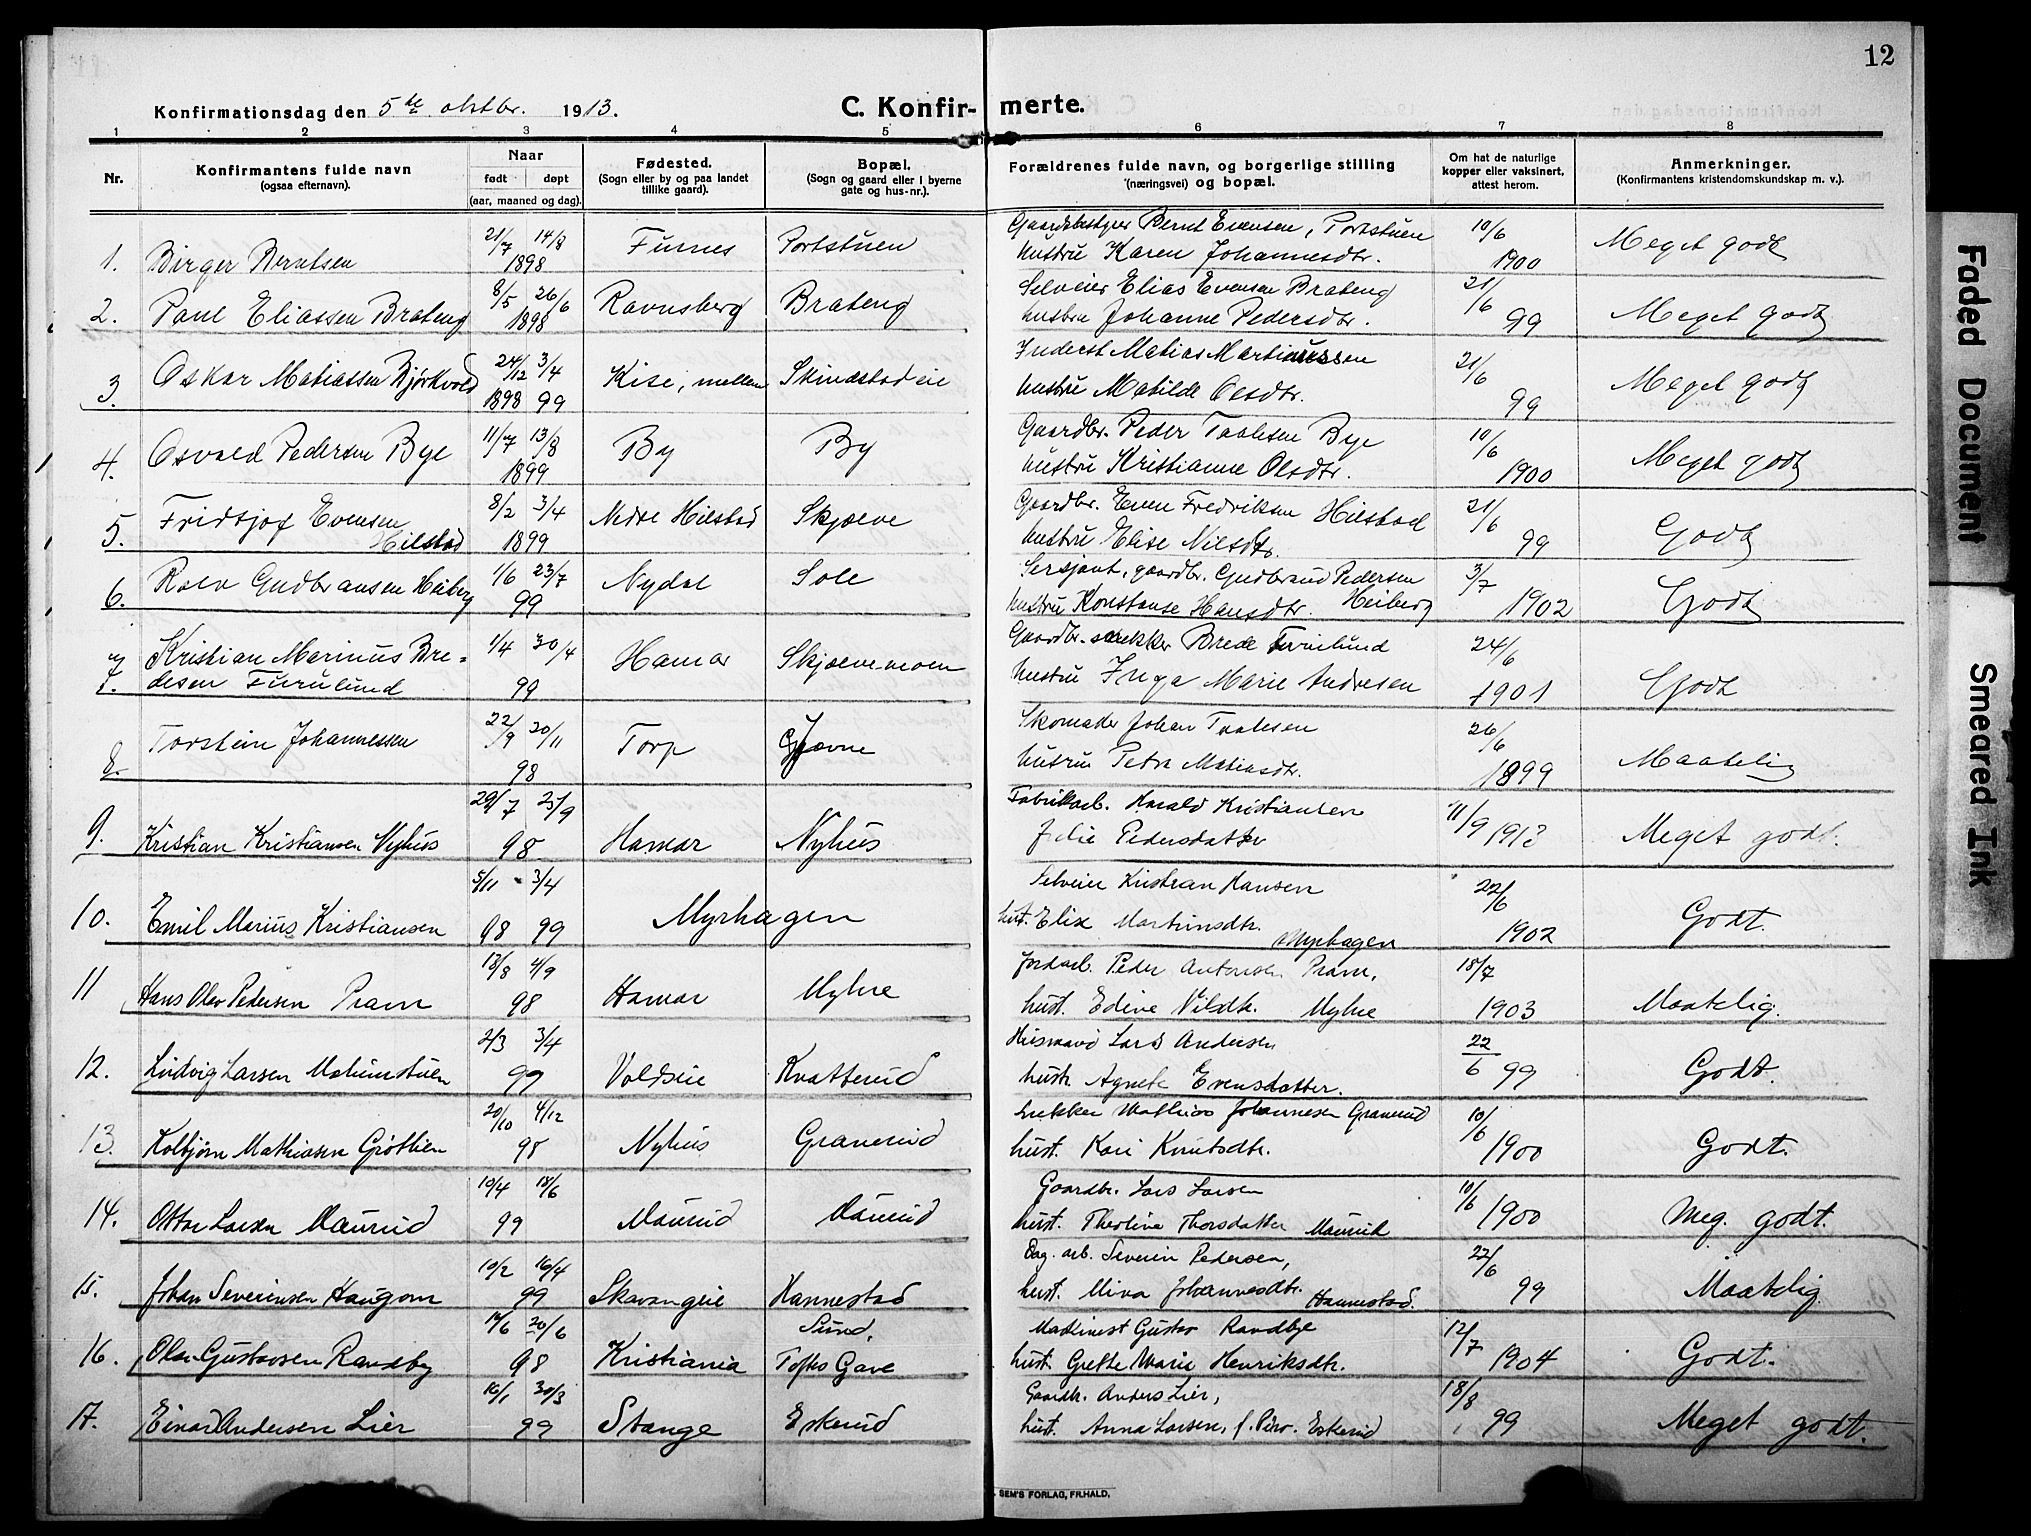 12
Konfirmationsdag den 5te oktbr. 1913.
C. Konfir- merte.
1 2 3 4 5 6 7 8
Nr.
Konfirmantens fulde navn
(ogsaa efternavn).
Naar
født døpt
(aar, maaned og dag).
Fødested.
(Sogn eller by og paa landet
tillike gaard).
Bopæl.
(Sogn og gaard eller i byerne
gate og hus-nr.).
Forældrenes fulde navn, og borgerlige stilling
(næringsvei) og bopæl.
Om hat de naturlige
kopper eller vaksinert,
attest herom.
Anmerkninger.
(Konfirmantens kristendomskundskap m. v.).
21/7 14/8 Gaardsbestyrer Bernt Evensen, Portstuen 10/6
1. Birger Berntsen 1898 Furnes Portstuen hustru Karen Johannesdtr. 1900 Meget godt
8/5 26/6 Selveier Elias Evensen Brateng 21/6
2. Paul Eliassen Brateng 1898 Ravnsberg Brateng hustru Johanne Pedersdtr. 99 Meget godt
24/12 3/4 Inderst Matias Martinussen 21/6
3. Oskar Matiassen Bjørkvold 1898 99 Kise, mellem Skindstadeie hustru Matilde Olsdtr. 99 Meget godt
11/7 13/8 Gaardbr. Peder Taalesen Bye 10/6
4. Osvald Pedersen Bye 1899 By By hustru Kristianne Olsdtr. 1900 Meget godt
Fridtjof Evensen 8/2 3/4 Nedre Hilstad Skjæve Gaardbr. Even Fredriksen Hilstad 21/6
5. Hilstad 1899 hustru Elise Nilsdtr. 99 Godt
1/6 23/7 Sersjant, gaardbr. Gudbrand Pedersen 3/7
6. Rolv Gudbransen Heiberg 99 Nydal Sole hustru Konstanse Hansdtr. Heiberg 1902 Godt
Kristian Marinus Bre- 1/4 30/4 Hamar Skjævemoen Gaardbr. snekker Brede Furulund 24/6
7. desen Furulund 99 hustru Inga Marie Andresen 1901 Godt
Torstein Johannessen 22/9 20/11 Torp Gjævne Skomaker Johan Taalesen 26/6
8. 98 hustru Petra Matiasdtr. 1899 Maatelig
29/7 25/9 Fabrikarb. Harald Kristiansen 11/9
9. Kristian Kristiansen Nyhus 98 Hamar Nyhus Julie Pedersdatter 1913 Meget godt.
5/11 3/4 Selveier Kristian Hansen 22/6
10. Emil Marius Kristiansen 98 99 Myrhagen hust. Elise Martinsdtr. Myrhagen 1902 Godt.
13/8 4/9 Jordarb. Peder Antonsen Pram, 18/7
11 Hans Olav Pedersen Pram 98 Hamar Myhre hust. Edine Nilsdtr. Myhre 1903 Maatelig.
2/3 3/4 Husmand Lars Andersen 22/6
12. Ludvig Larsen Malumstuen 99 Voldseie Kvatterud hustr. Agnete Evensdatter. 99 Godt.
20/10 4/12 Snekker Mathias Johannesen Granerud 10/6
13. Kolbjørn Mathiasen Grøthen 98 Nyhus Granerud hust. Kari Knutsdtr. 1900 Godt.
10/4 18/6 Gaardbr. Lars Larsen 10/6
14. Ottar Larsen Maurud 99 Maurud Maurud hust. Theoline Thorsdatter Maurud 1900 Meg. godt.
10/2 16/4 Dag. arb. Severin Pedersen, 22/6
15. Johan Severinsen Haugom 99 Skavangeie Hannestad hust. Mina Johannesdtr. Hannestad. 99 Maatelig
17/6 20/6 Sund, Maskinist Gustav Randbye 12/7
16. Olav Gustavsen Randby 98 Kristiania Toftes Gave hust. Grethe Marie Henriksdtr. 1904 Godt.
16/1 30/3 Gaardbr. Anders Lier, 18/8
17. Einar Andersen Lier 99 Stange Eskerud hust. Anna Larsen, Eskerud 99 Meget godt.
SEM'S FORLAG, FR.HALD,
Faded Document
Smeared Ink